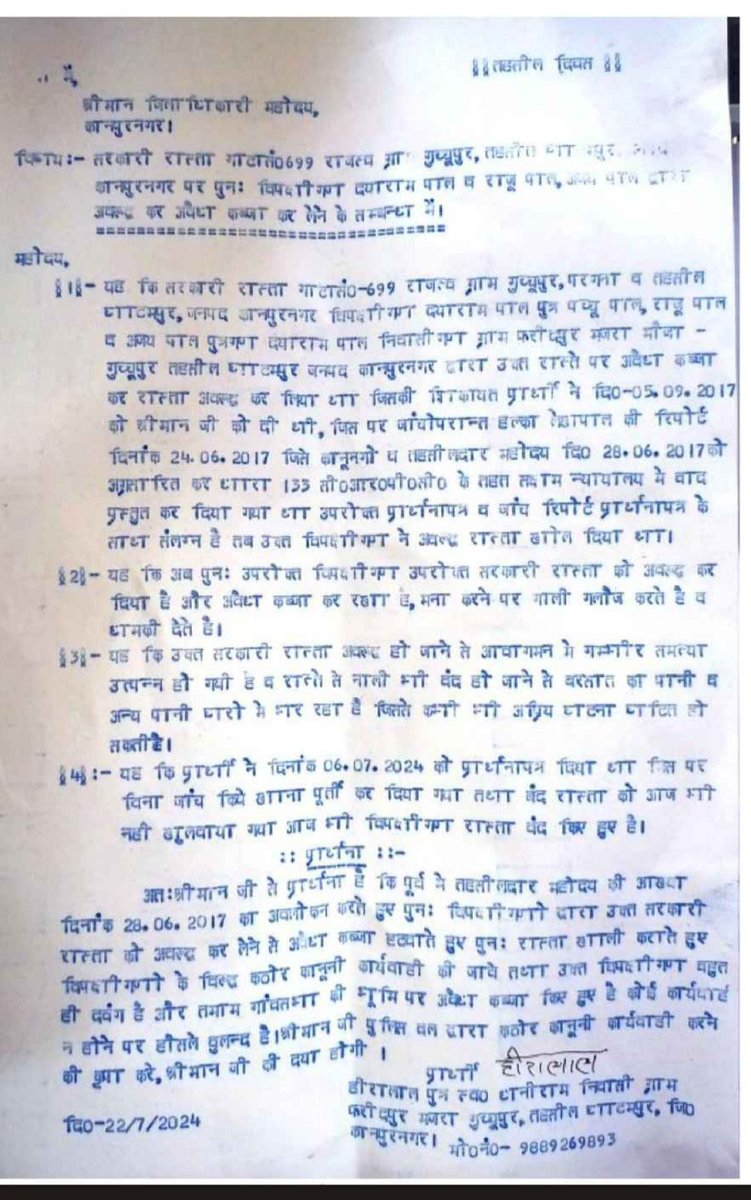 ॥तहसील दिवस॥
.. में,
श्रीमान जिलाधिकारी महोदय,
कानपुरनगर।
विषय:- सरकारी रास्ता गाटासं0699 राजस्व ग्राम गुच्चूपुर, तहसील
कानपुरनगर पर पुनः विपक्षीगण दयाराम पाल व राजू पाल, अजय पाल द्वारा
अवरूद्ध कर अवैध कब्जा कर लेने के सम्बन्ध में।
महोदय,
॥1॥- यह कि सरकारी रास्ता गाटासं0-699 राजस्व ग्राम गुच्चूपुर, परगना व तहसील
घाटमपुर, जनपद कानपुरनगर विपक्षीगण दयाराम पाल पुत्र पच्चू पाल, राजू पाल
व अजय पाल पुत्रगण दयाराम पाल निवासीगण ग्राम फरीदपुर मजरा मौजा -
गुच्चूपुर तहसील घाटमपुर जनपद कानपुरनगर द्वारा उक्त रास्ते पर अवैध कब्जा
कर रास्ता अवरूद्ध कर लिया था जिसकी शिकायत प्रार्थी ने दि0-05.09.2017
को श्रीमान जी को दी थी, जिस पर जांचोपरान्त हल्का लेखपाल की रिपोर्ट
दिनांक 24.06.2017 जिसे कानूनगो व तहसीलदार महोदय दि0 28.06.2017को
अग्रसारित कर धारा 133 सी0आर0पी0सी0 के तहत सक्षम न्यायालय मे वाद
प्रस्तुत कर दिया गया था उपरोक्त प्रार्थनापत्र व जांच रिपोर्ट प्रार्थनापत्र के
साथ संलग्न है तब उक्त विपक्षीगण ने अवरूद्ध रास्ता खोल दिया था।
॥2॥- यह कि अब पुनः उपरोक्त विपक्षीगण उपरोक्त सरकारी रास्ता को अवरूद्ध कर
दिया है और अवैध कब्जा कर रखा है, मना करने पर गाली गलौज करते है व
धामकी देते है।
॥3॥- यह कि उक्त सरकारी रास्ता अवरूद्ध हो जाने से आवागमन मे गम्भीर समस्या
उत्पन्न हो गयी है व रास्ते से नाली भी बंद हो जाने से बरसात का पानी व
अन्य पानी घरो मे भर रहा है जिससे कभी भी अप्रिय घटना घटित हो
सकतीहै।
॥4॥:- यह कि प्रार्थी ने दिनांक 06.07.2024 को प्रार्थनापत्र दिया था जिस पर
बिना जांच किये खाना पूर्ती कर दिया गया तथा बंद रास्ता को आज भी
नही खुलवाया गया आज भी विपक्षीगण रास्ता बंद किए हुए है।
:: प्रार्थना ::-
अतःश्रीमान जी से प्रार्थना है कि पूर्व मे तहसीलदार महोदय की आख्या
दिनांक 28.06.2017 का अवलोकन करते हुए पुनः विपक्षीगणो द्वारा उक्त सरकारी
रास्ता को अवरूद्ध कर लेने से अवैध कब्जा हटवाते हुए पुनः रास्ता खाली कराते हुए
विपक्षीगणो के विरूद्ध कठोर कानूनी कार्यवाही की जावे तथा उक्त विपक्षीगण बहुत
ही दबंग है और तमाम गांवसभा की भूमि पर अवैध कब्जा किए हुए है कोई कार्यवाई
न होने पर हौसले बुलन्द है।श्रीमान जी पुलिस बल द्वारा कठोर कानूनी कार्यवाही करने
की कृपा करे, श्रीमान जी की दया होगी ।
प्रार्थी हीरालाल
हीरालाल पुत्र स्व0 धानीराम निवासी ग्राम
फरीदपुर मजरा गुच्चूपुर, तहसील घाटमपुर, जि0
कानपुरनगर।
मो0नं0- 9889269893
दि0-22/7/2024